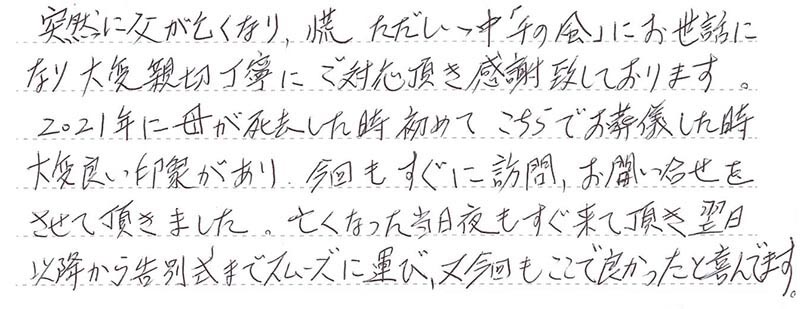 突然に父が亡くなり、慌ただしい中「千の風」にお世話に
なり大変親切丁寧にご対応頂き感謝致しております。
2021年に母が死去した時初めてこちらでお葬儀した時
大変良い印象があり、今回もすぐに訪問、お問い合せを
させて頂きました。亡くなった当日夜もすぐ来て頂き翌日
以降から告別式までスムーズに運び、又今回もここで良かったと喜んでます。